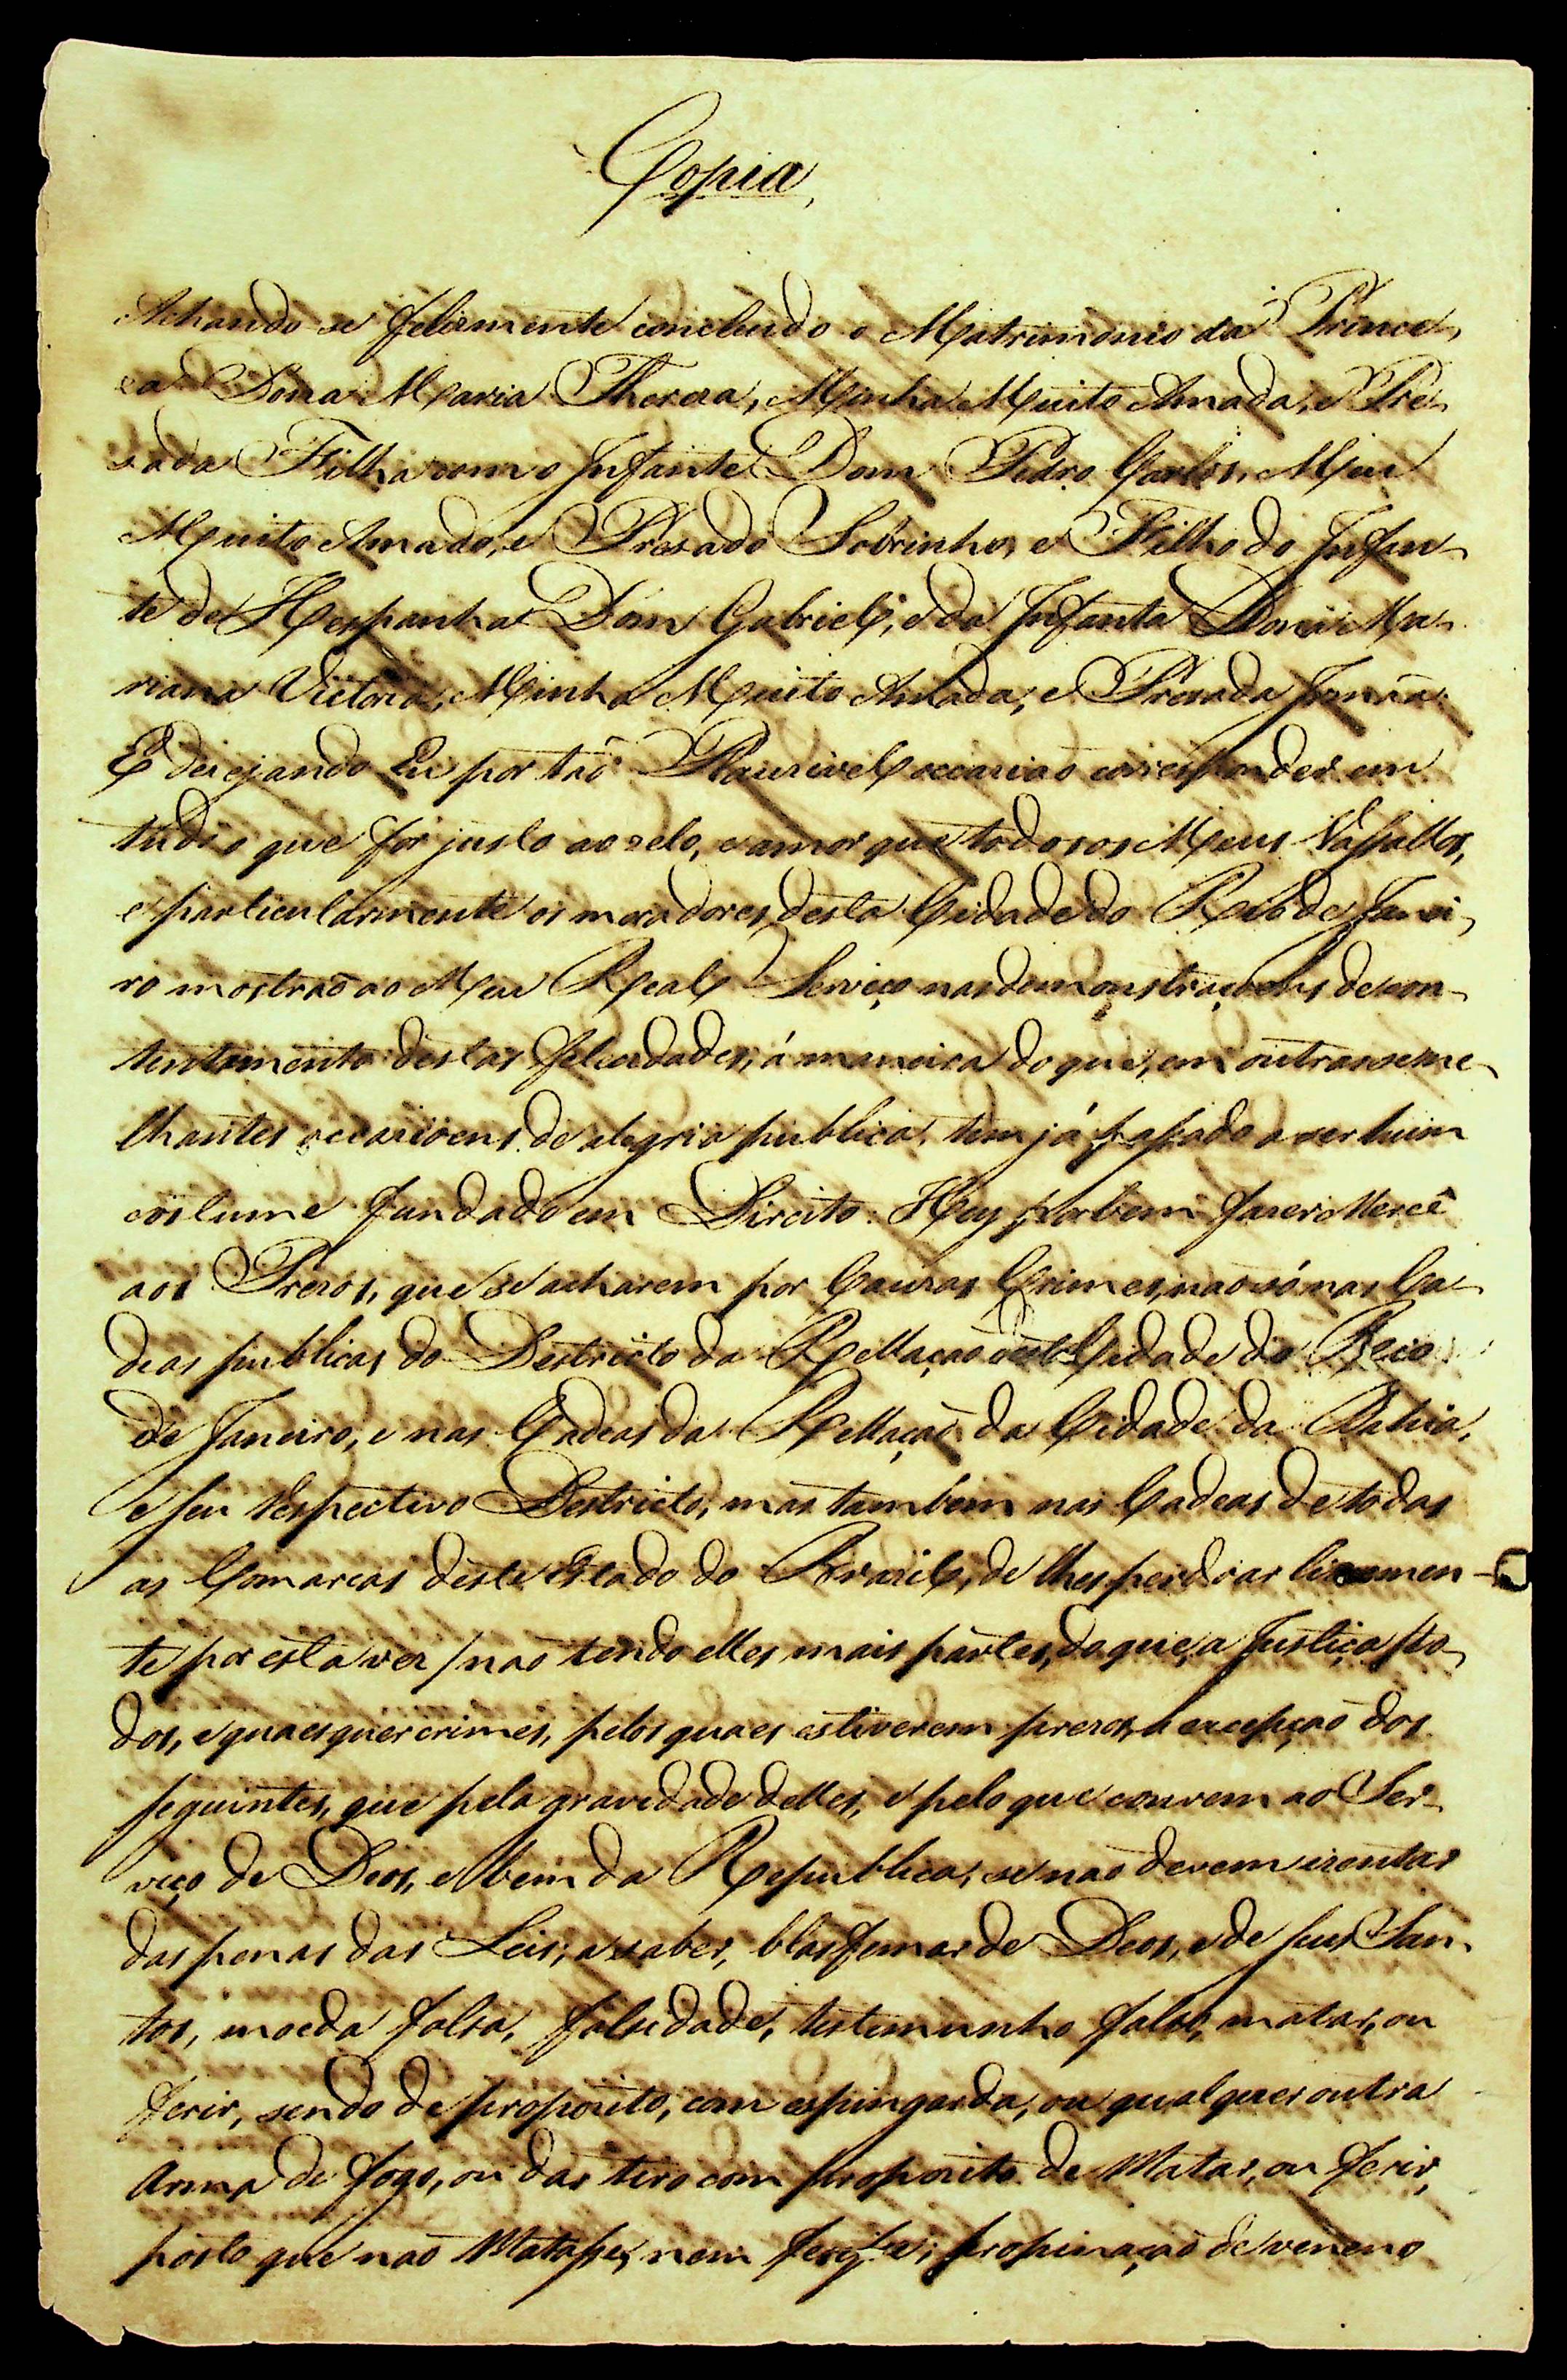 Copia,
Achando se felizmente concluido o Matrimonio da Prince-
za Dona Maria Thereza, Minha Muito Amada, e Pre-
zada Filha com o Infante Dom Pedro Carlos, Meu
Muito Amado, e Prezado Sobrinho, e Filho do Infan-
te de Hespanha Dom Gabriel, e da Infanta Dona Ma-
riana Victoria, Minha Muito Amada, e Prezada Irmãa:
E desejando Eu por tão Plauzivel occazião corresponder em
tudo o que for justo ao zelo, e amor que todos os Meus Vassallos,
e particularmente os moradores desta Cidade do Rio de Janei-
ro mostrão ao Meu Real Serviço nas demonstraçoens de con-
tentamento destas felicidades, á maneira do que, em outras seme-
lhantes occazioens de alegria publica, tem já passado a ser hum
costume fundado em Direito: Hey por bem fazer Mercê
aos Prezos, que se acharem por Cauzas Crimes, não só nas Ca-
deas publicas do Destricto da Rellação desta Cidade do Rio
de Janeiro, e nas Cadeas da Rellação da Cidade da Bahia,
e seu respectivo Destricto, mas tambem nas Cadeas de todas
as Comarcas deste Estado do Brazil, de lhes perdoar livremen-
te por esta vez / não tendo elles mais partes, do que, a Justiça to-
dos, e quaesquer crimes, pelos quaes estiverem prezos, á excepção dos
seguintes, que pela gravidade delles, e pelo que convem ao Ser-
viço de Deos, e bem da Republica, se não devem izentar
das penas das Leis; a saber, blasfemar de Deos, e de seus San-
tos, moeda falsa, falsidade, testemunho falso, matar, ou
ferir, sendo de propozito, com espingarda, ou qualquer outra
Arma de fogo, ou dar tiro com propozito de Matar, ou ferir,
posto que não Matasse, nem ferisse; propinação de veneno